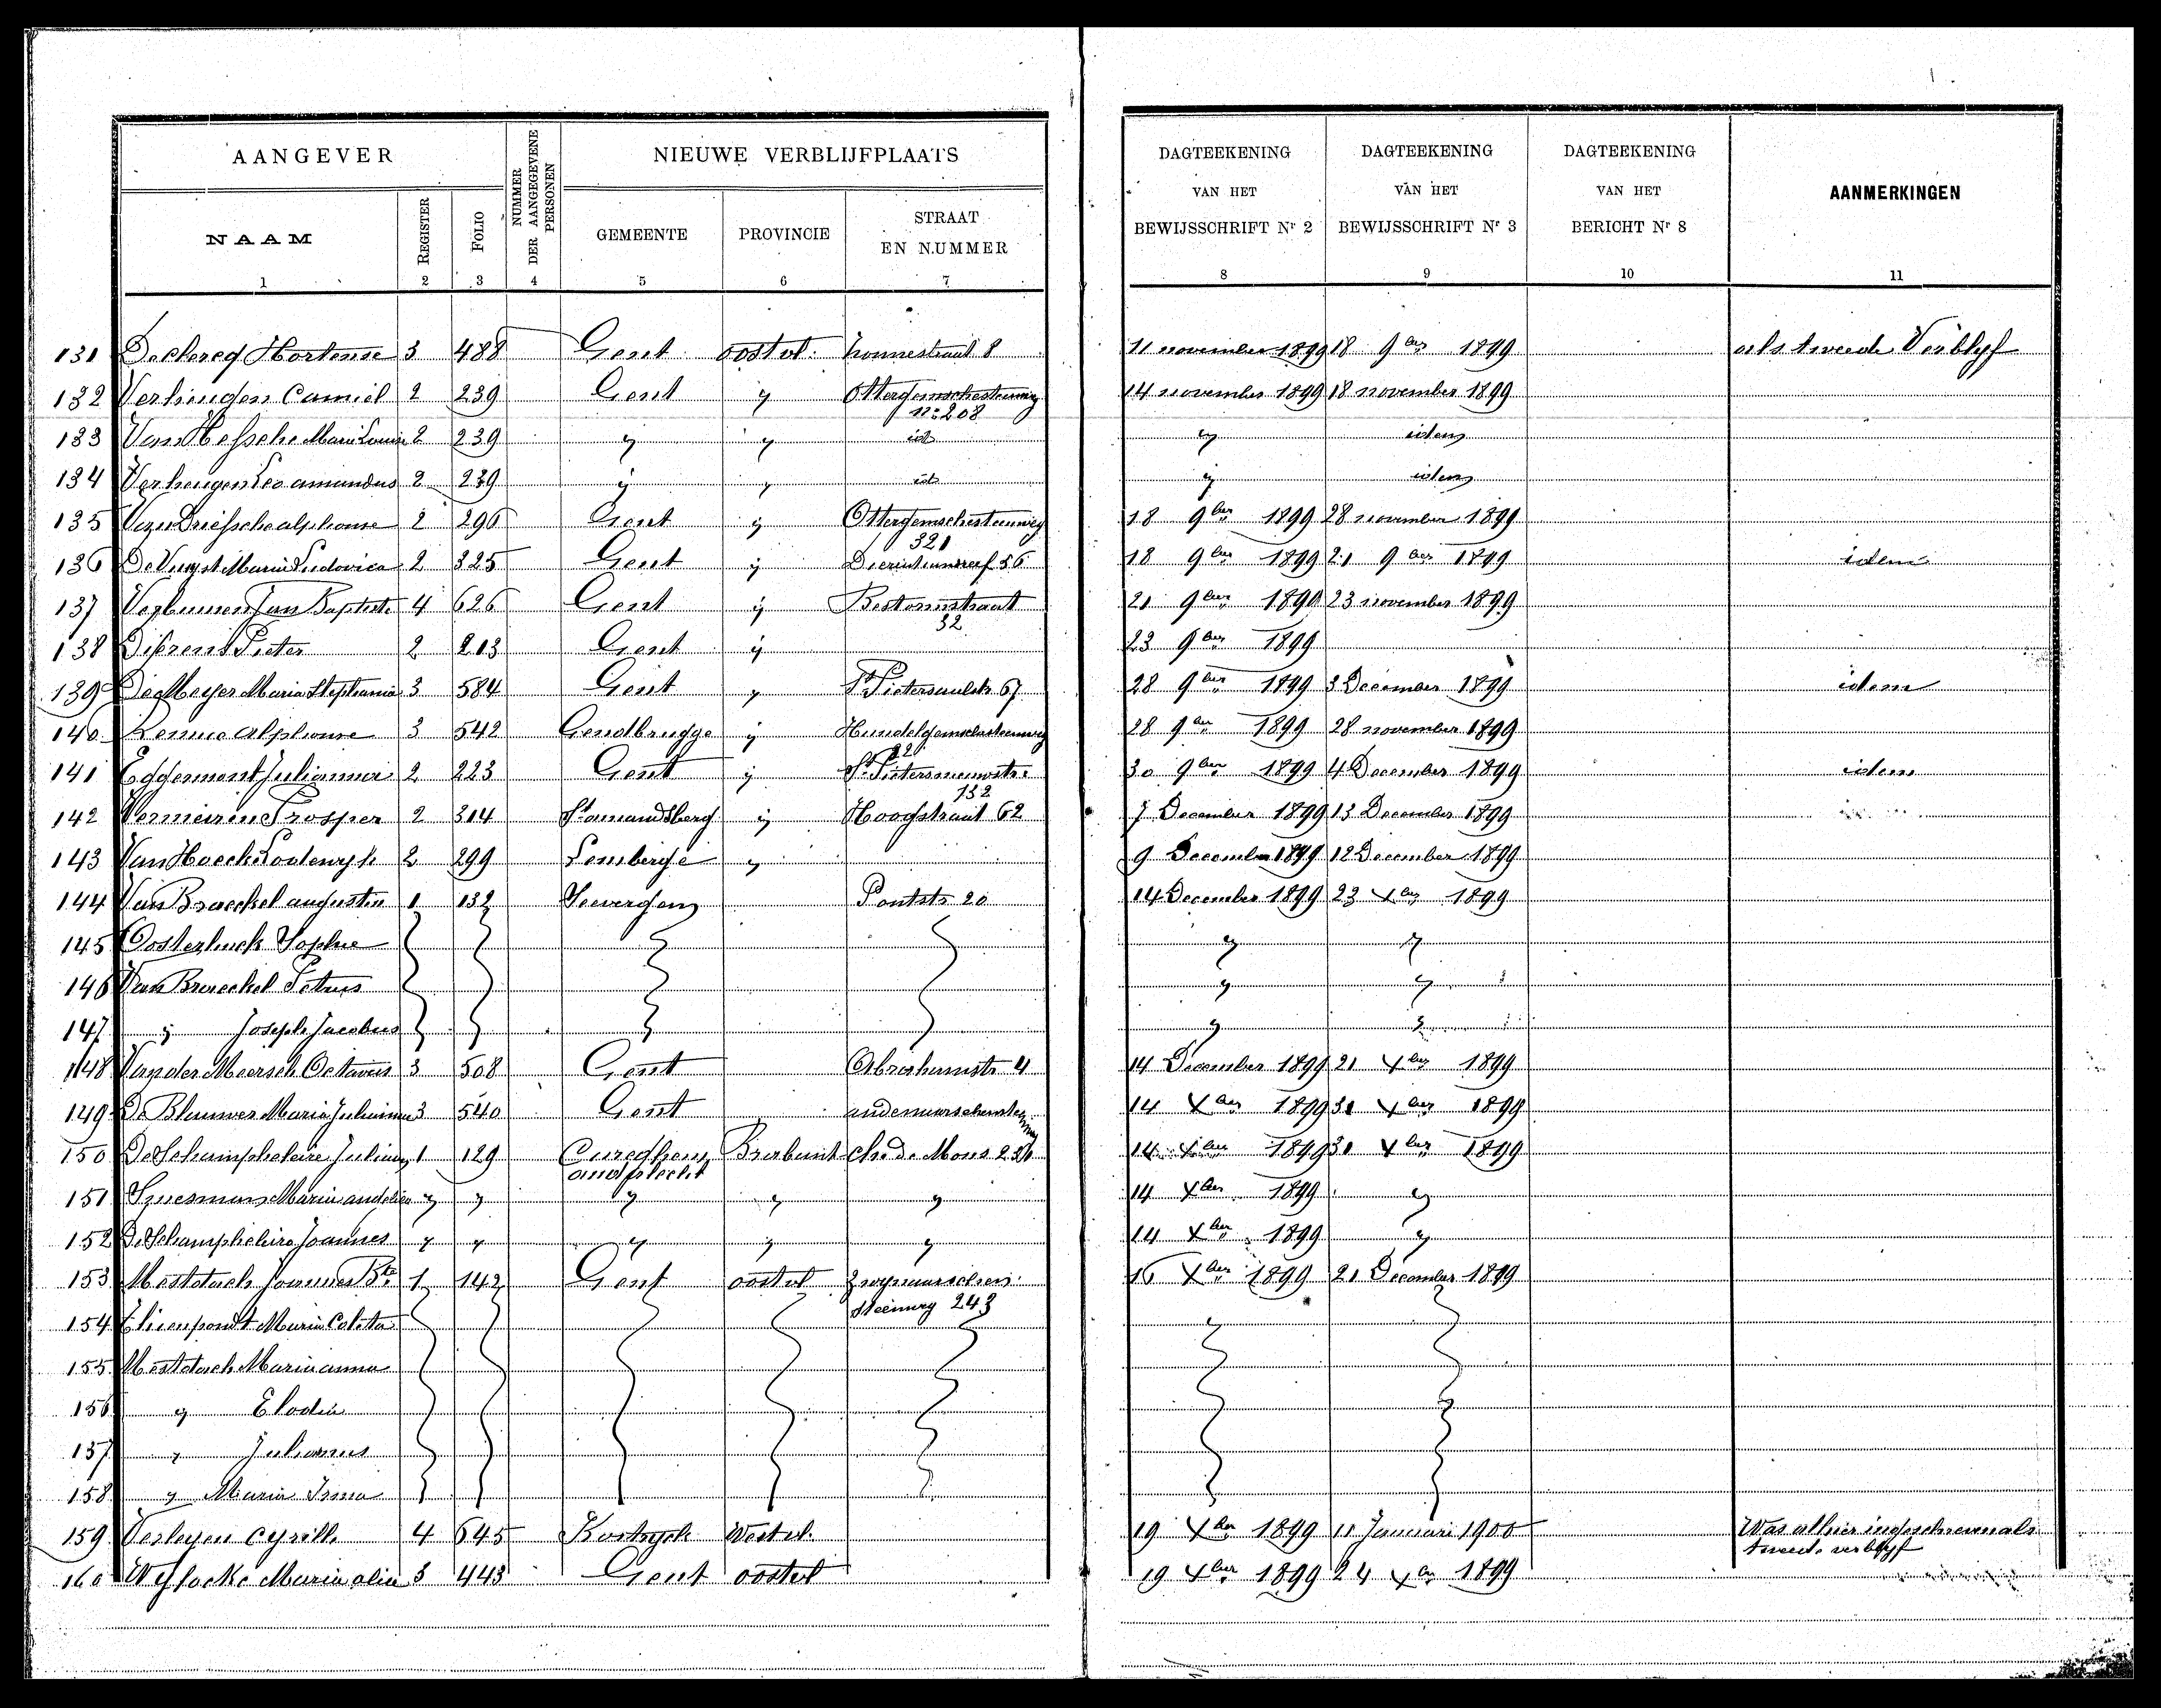 AANGEVER
NUMMER DER AANGEGEVENE PERSONEN
NIEUWE VERBLIJFPLAATS
DAGTEEKENING VAN HET BEWIJSSCHRIFT Nr 2
DAGTEEKENING VAN HET BEWIJSSCHRIFT Nr 3
DAGTEEKENING VAN HET BERICHT Nr 8
AANMERKINGEN
NAAM
REGISTER
FOLIO
GEMEENTE
PROVINCIE
STRAAT EN NUMMER
1 2 3 4 5 6 7 8 9 10 11
131 Declercq Hortense 3 488 Gent oostvl. 8 11 november 1899 18 9ber 1899 als tweede Verblyf
132 Verheugen Camiel 2 239 Gent y Ottergemschesteenweg 14 november 1899 18 november 1899
n: 208
133 Van Hessche Marie Louise 2 239 y y id y idem
134 Verheugen Leo amandus 2 239 y y id y idem
135 Van Driessche alphonse 2 296 Gent y Ottergemschesteenweg 18 9ber 1899 28 november 1899
321
136 De Vuyst Maria Ludovica 2 325 Gent y 56 18 9ber 1899 21 9ber 1899 idem
137 Jan Baptiste 4 626 Gent y 21 9ber 1899 23 november 1899
32
138 Pieter 2 213 Gent y 23 9ber 1899
139 De Meyer Maria Stephania 3 584 Gent y 67 28 9ber 1899 3 December 1899 idem
140 alphonse 3 542 Gendbrugge y Hundelgemschesteenweg 28 9ber 1899 28 november 1899
22
141 Eggermont Julianna 2 223 Gent y St Pietersnieuwstr. 30 9ber 1899 4 December 1899 idem
132
142 Vermeiren Prosper 2 314 St amandsberg y Hoogstraat 62 7 December 1899 13 December 1899
143 Van Hoecke Lodewyk 2 299 Lemberge y 9 December 1899 12 December 1899
144 Van Braeckel augustin 1 132 Seevergem Pontstr 20 14 December 1899 23 Xber 1899
145 Oosterlinck Sophie y y
146 Van Braeckel Petrus y y
147 y Joseph Jacobus y y
148 Vander Meersch Octavus 3 508 Gent Abrahamstr 4 14 December 1899 21 Xber 1899
149 De Blauwer Maria Julianna 3 540 Gent 14 Xber 1899 31 Xber 1899
150 De Schampheleire Juliaan 1 129 Cureghem Brabant ch. de Mons 14 Xber 1899 31 Xber 1899
anderlecht
151 Maria y y y y y 14 Xber 1899 y
152 De Schampheleire Joannes y y y y y 14 Xber 1899 y
153 Mestdach Joannes Bte 1 142 Gent oostvl Zwynaarschen 16 Xber 1899 21 December 1899
steenweg 243
154 Maria Coleta y
155 Mestdach Maria anna
156 y Elodie
157 y Julianus
158 y Maria Irma
159 Verleyen Cyrille 4 645 Kortryck Westvl. 19 Xber 1899 11 Januari 1900 Was alhier ingeschreven als
tweede verblyf
160 Wylocke Maria 3 443 Gent oostvl 19 Xber 1899 24 Xber 1899